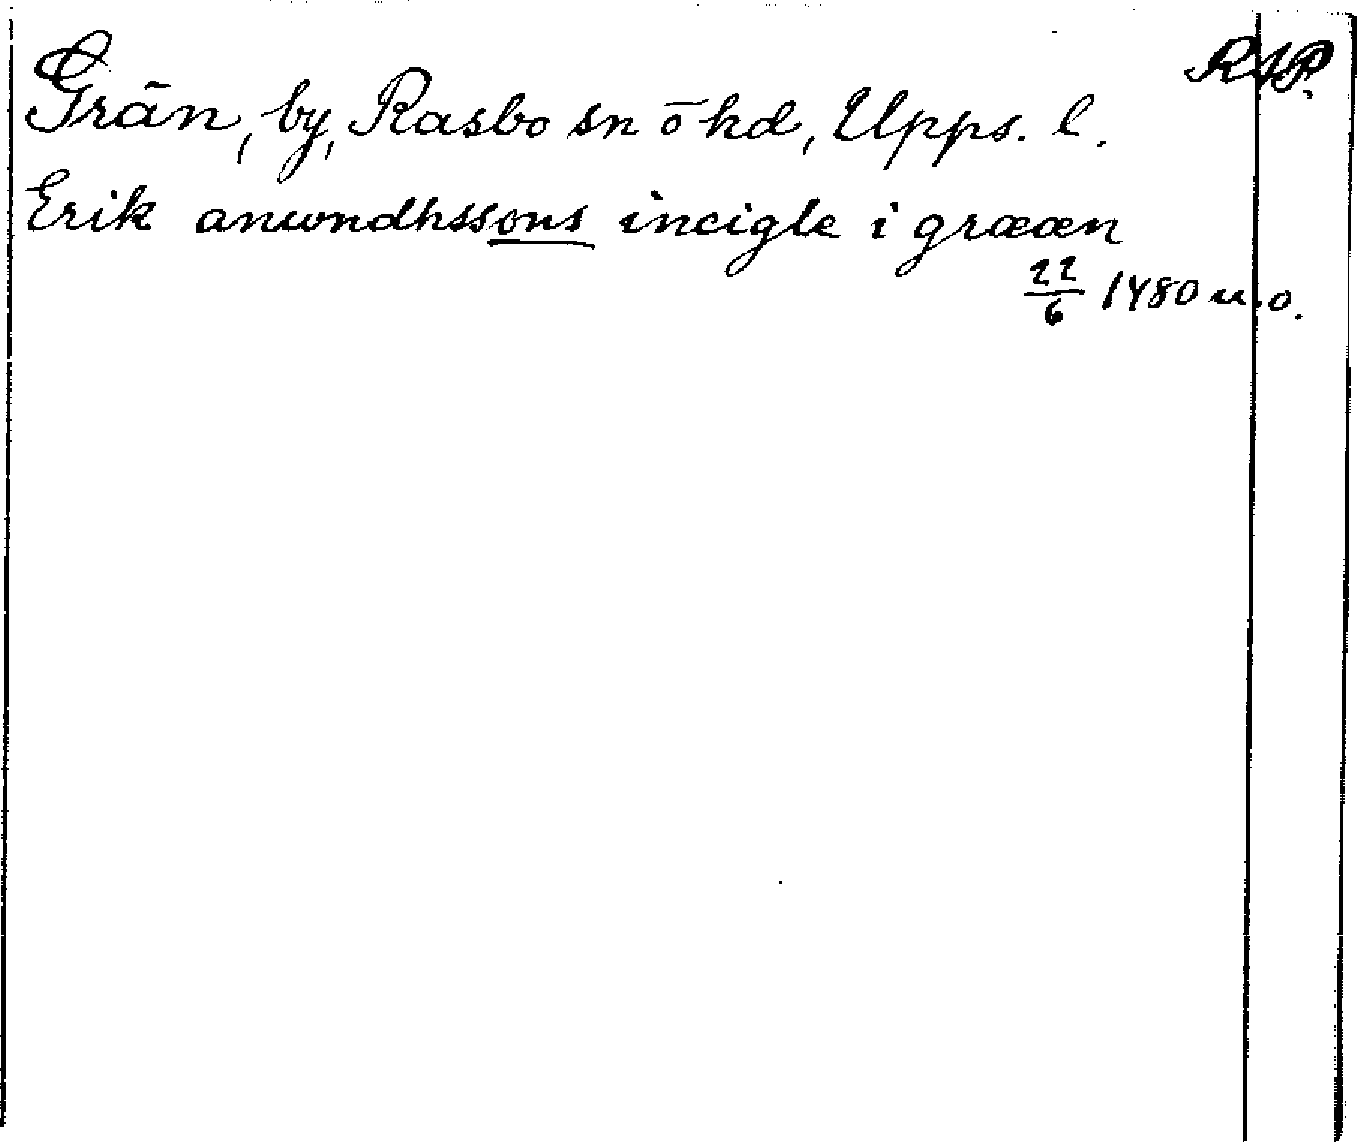 RAP.
Grän, by, Rasbo sn o hd, Upps. l.
Erik anwndhssons incigle i grææn
22/6 1480 u.o.